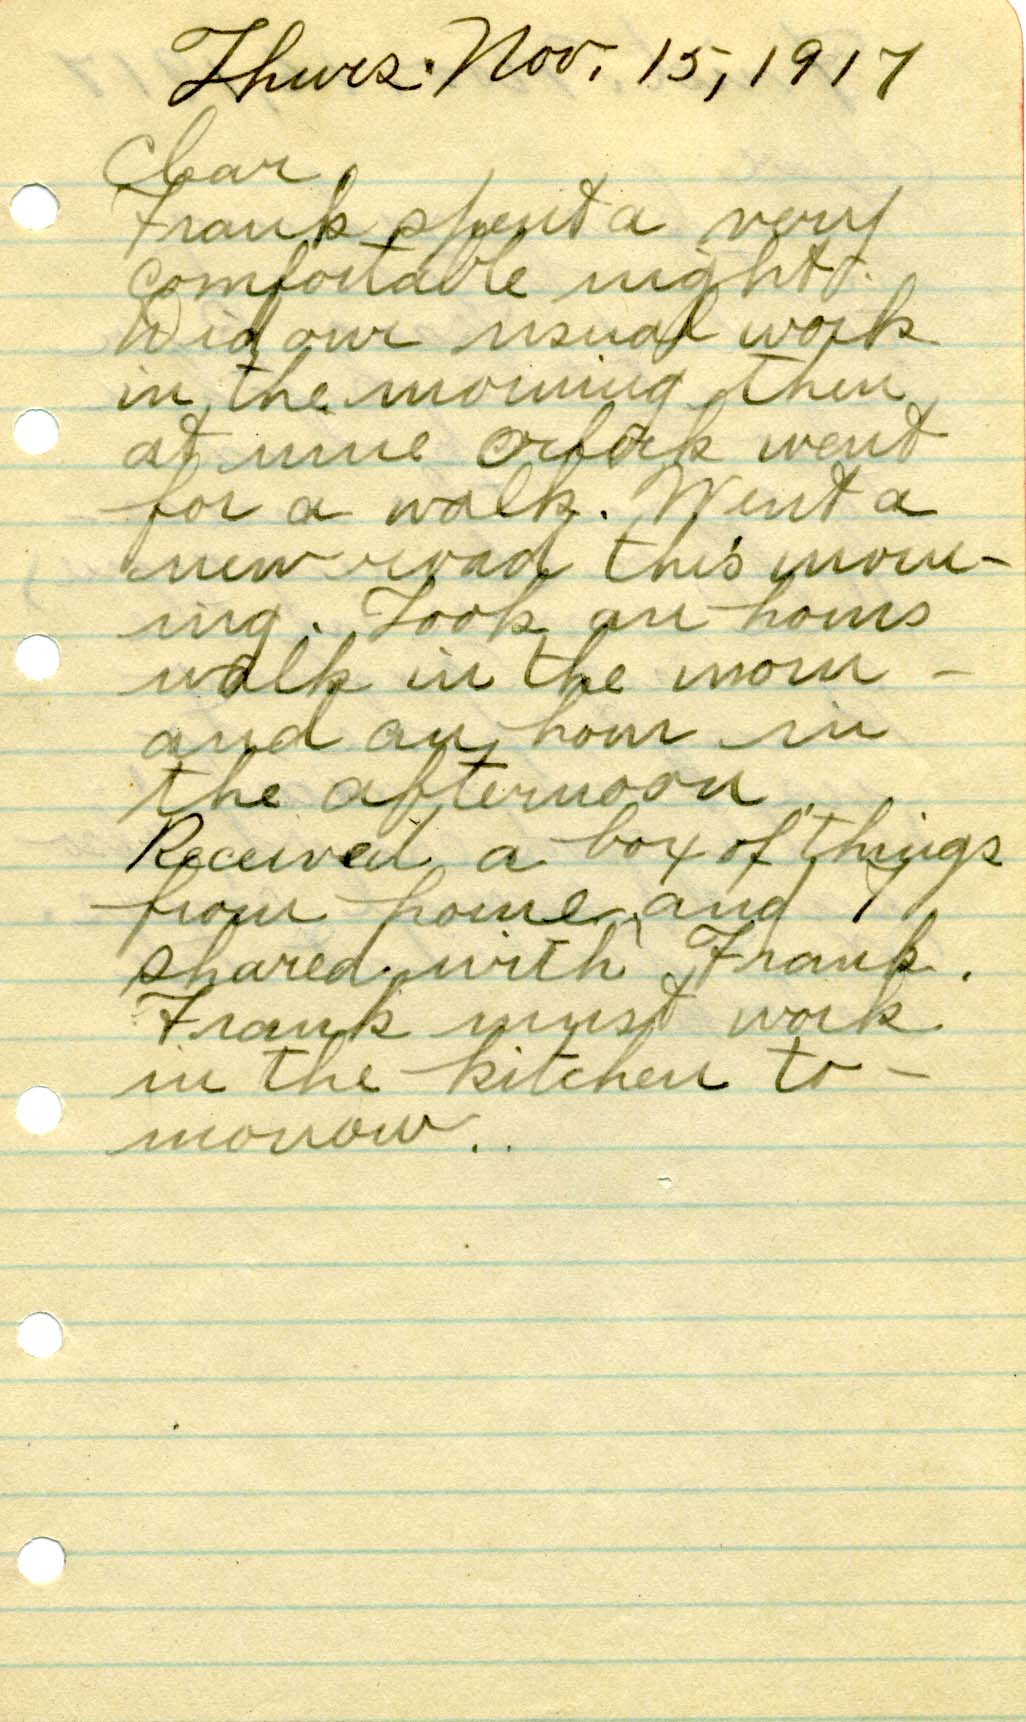 Thurs. Nov. 15, 1917
Clear
Frank spent a very
comfortable night.
Did our usual work
in the morning then
at nine oclock went
for a walk. Went a
new road this morn-
ing. Took an hours
walk in the morn -
and an hour in
the afternoon
Received a box of things
from home and
shared with Frank.
Frank must work
in the kitchen to -
morrow..